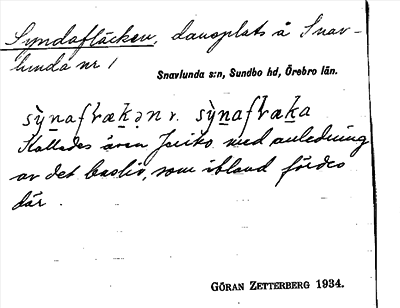 Syndafläcken, dansplats å Snav-
lunda nr 1
Snavlunda s:n, Sundbo hd, Örebro län.
sỳnafɫækən r. sỳnafɫæka
Kallades även Jeriko med anledning
av det basliv, som ibland fördes
där.
GÖRAN ZETTERBERG 1934.